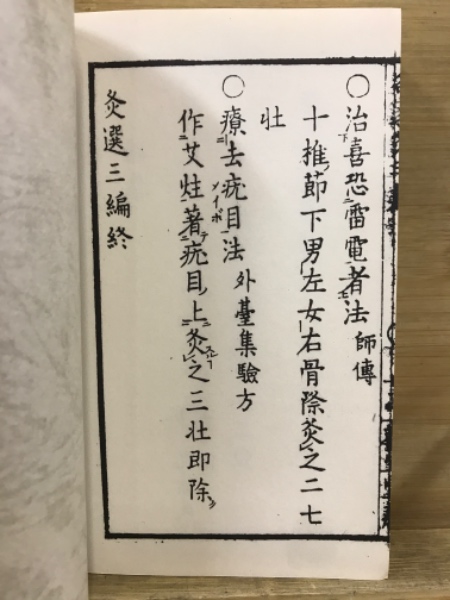 ○治喜恐雷電者法 師傳
十推節下男左女右骨際灸之二七
壯
○療去疣目法 外臺集驗方
作艾炷著疣目上灸之三壯即除
灸選三編終